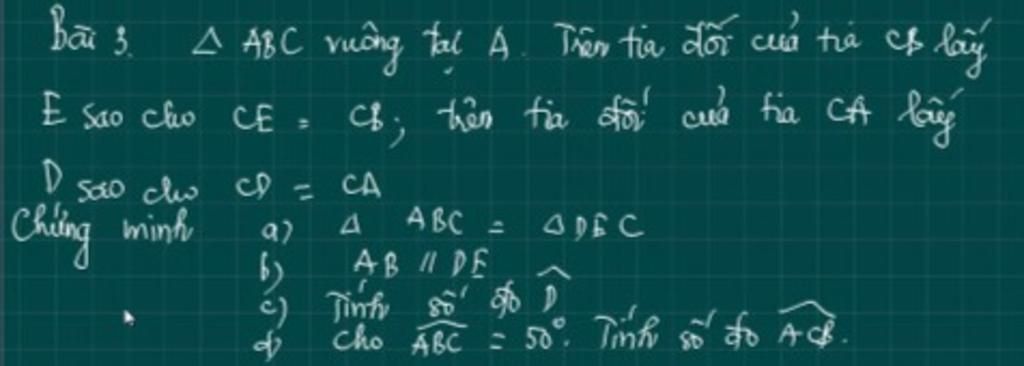 Bài 3. Δ ABC vuông tại A. Trên tia đối của tia CB lấy
E sao cho CE = CB; trên tia đối của tia CA lấy
D sao cho CD = CA
Chứng minh a) Δ ABC = Δ DEC
b) AB // DE
c) Tính số đo \widehat{D}
d) Cho \widehat{ABC} = 50°. Tính số đo \widehat{ACB}.